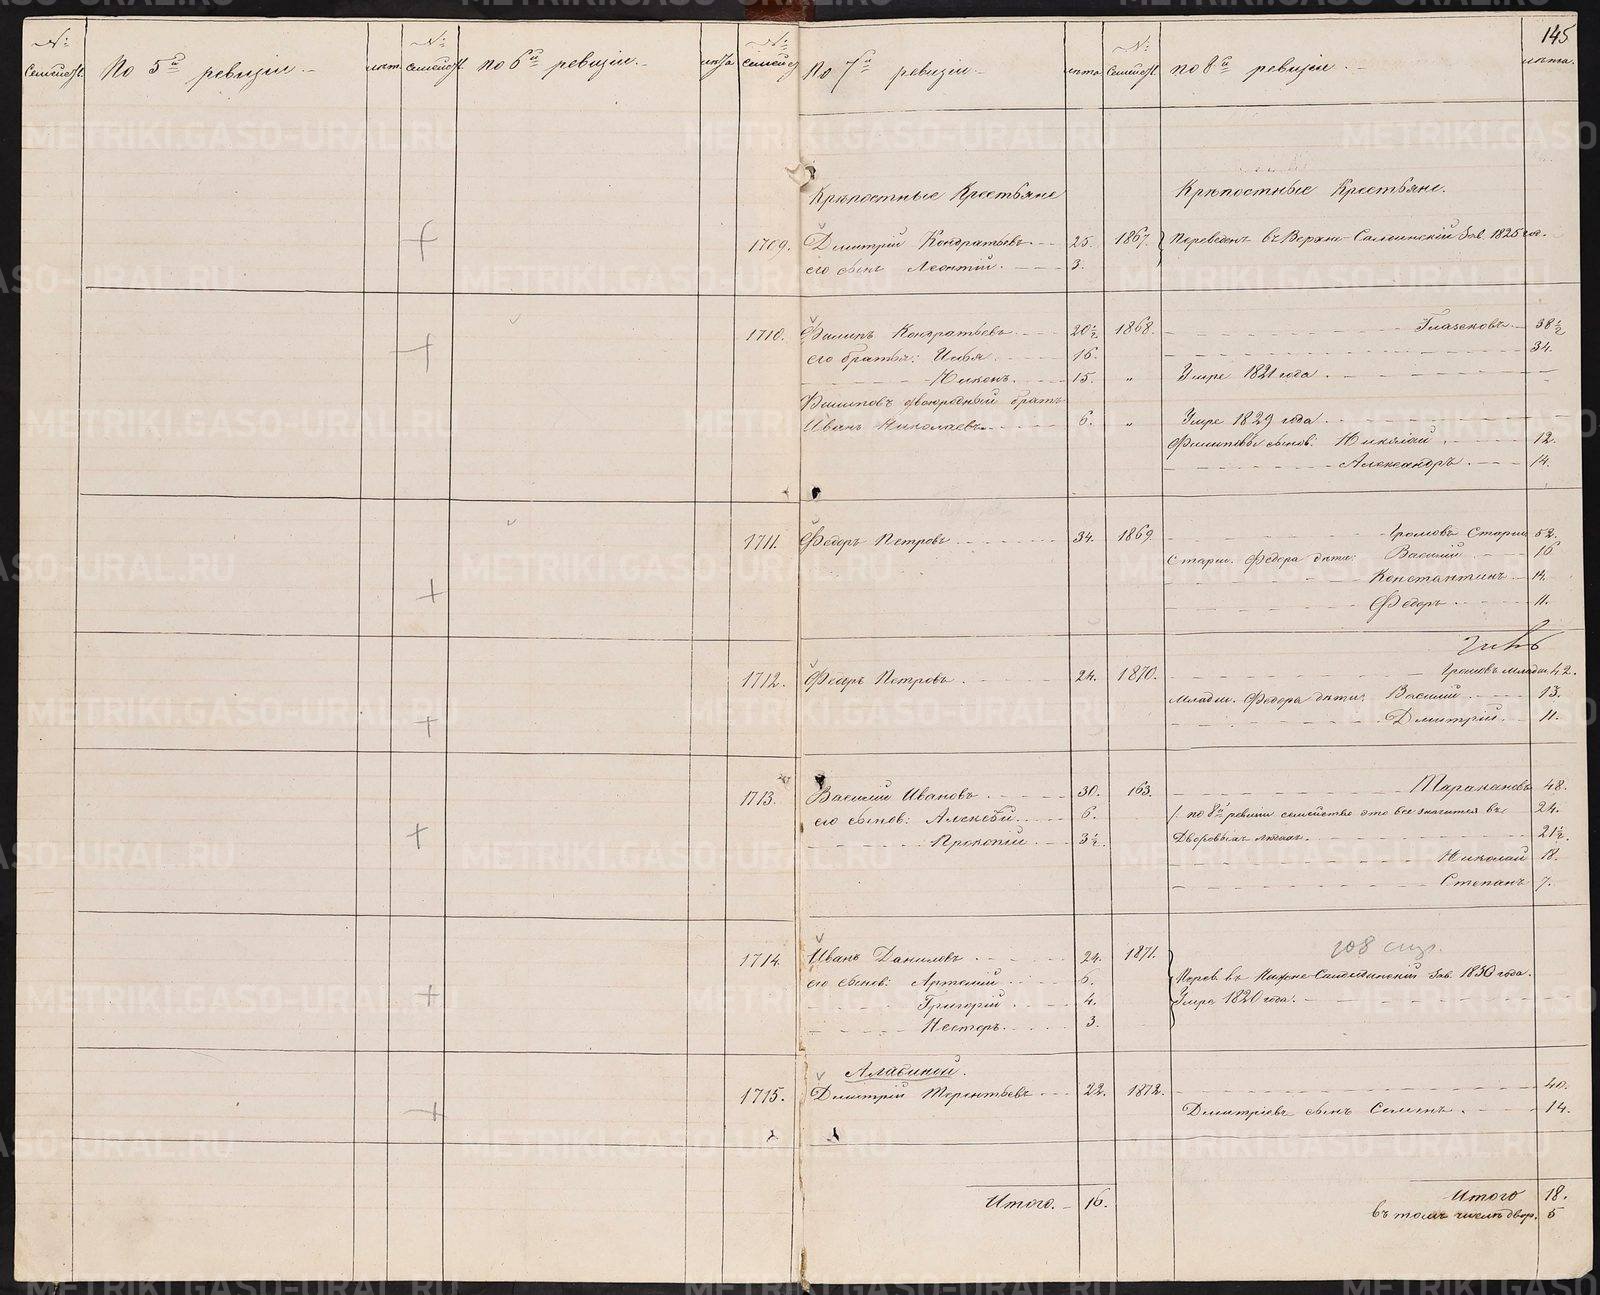 145
№ семейст. По 5й ревизіи. лѣт. № семейст. по 6й ревизіи. лѣта № семейс. По 7й ревизіи. лѣта № семейст. по 8й ревизіи. лѣта.
Крѣпостные Крестьяне Крѣпостные Крестьяне.
1709. Дмитрій Кондратьевъ 25. 1867. Переведенъ въ Верхне-Салдинскій Зав. 1825 го.
его сынъ Леонтій. 3.
1710. Филипъ Кондратьевъ 20½ 1868. Глазковъ 38½
его братья: Илья 16. 34.
Никонъ. 15. „ Умре 1821 года
Филиповъ двоюродный братъ
Иванъ Николаевъ 6. „ Умре 1829 года
Филиповы сынов: Николай 12.
Александръ 14.
1711. Федоръ Петровъ 34. 1869. Громовъ Старш 52.
Старш. Федора дѣти: Василій 16
Константинъ 14.
Федоръ 11.
1712. Федръ Петровъ 24. 1870. Громовъ младш 42.
Младш. Федора дѣти: Василій 13.
Дмитрій. 11.
1713. Василій Ивановъ 30. 163. Таракановъ 48.
его сынов: Алексѣй 6. по 8й ревизіи семейство это все значится въ 24.
Прокопій 3½. Дворовыхъ людяхъ. 21½.
Николай 18.
Степанъ 7.
208 стр.
1714. Иванъ Даниловъ 24. 1871.
его сынов: Артемій 6. Перев. въ Нижне-Салдинскій Зав. 1830 года.
Григорій 4. Умре 1820 года.
Несторъ. 3.
Алабиной.
1715. Дмитрій Терентьевъ 22. 1872. 40.
Дмитріевъ сынъ Семенъ. 14.
Итого. 16. Итого 18.
въ томъ числѣ двор. 5
METRIKI.GASO-URAL.RU